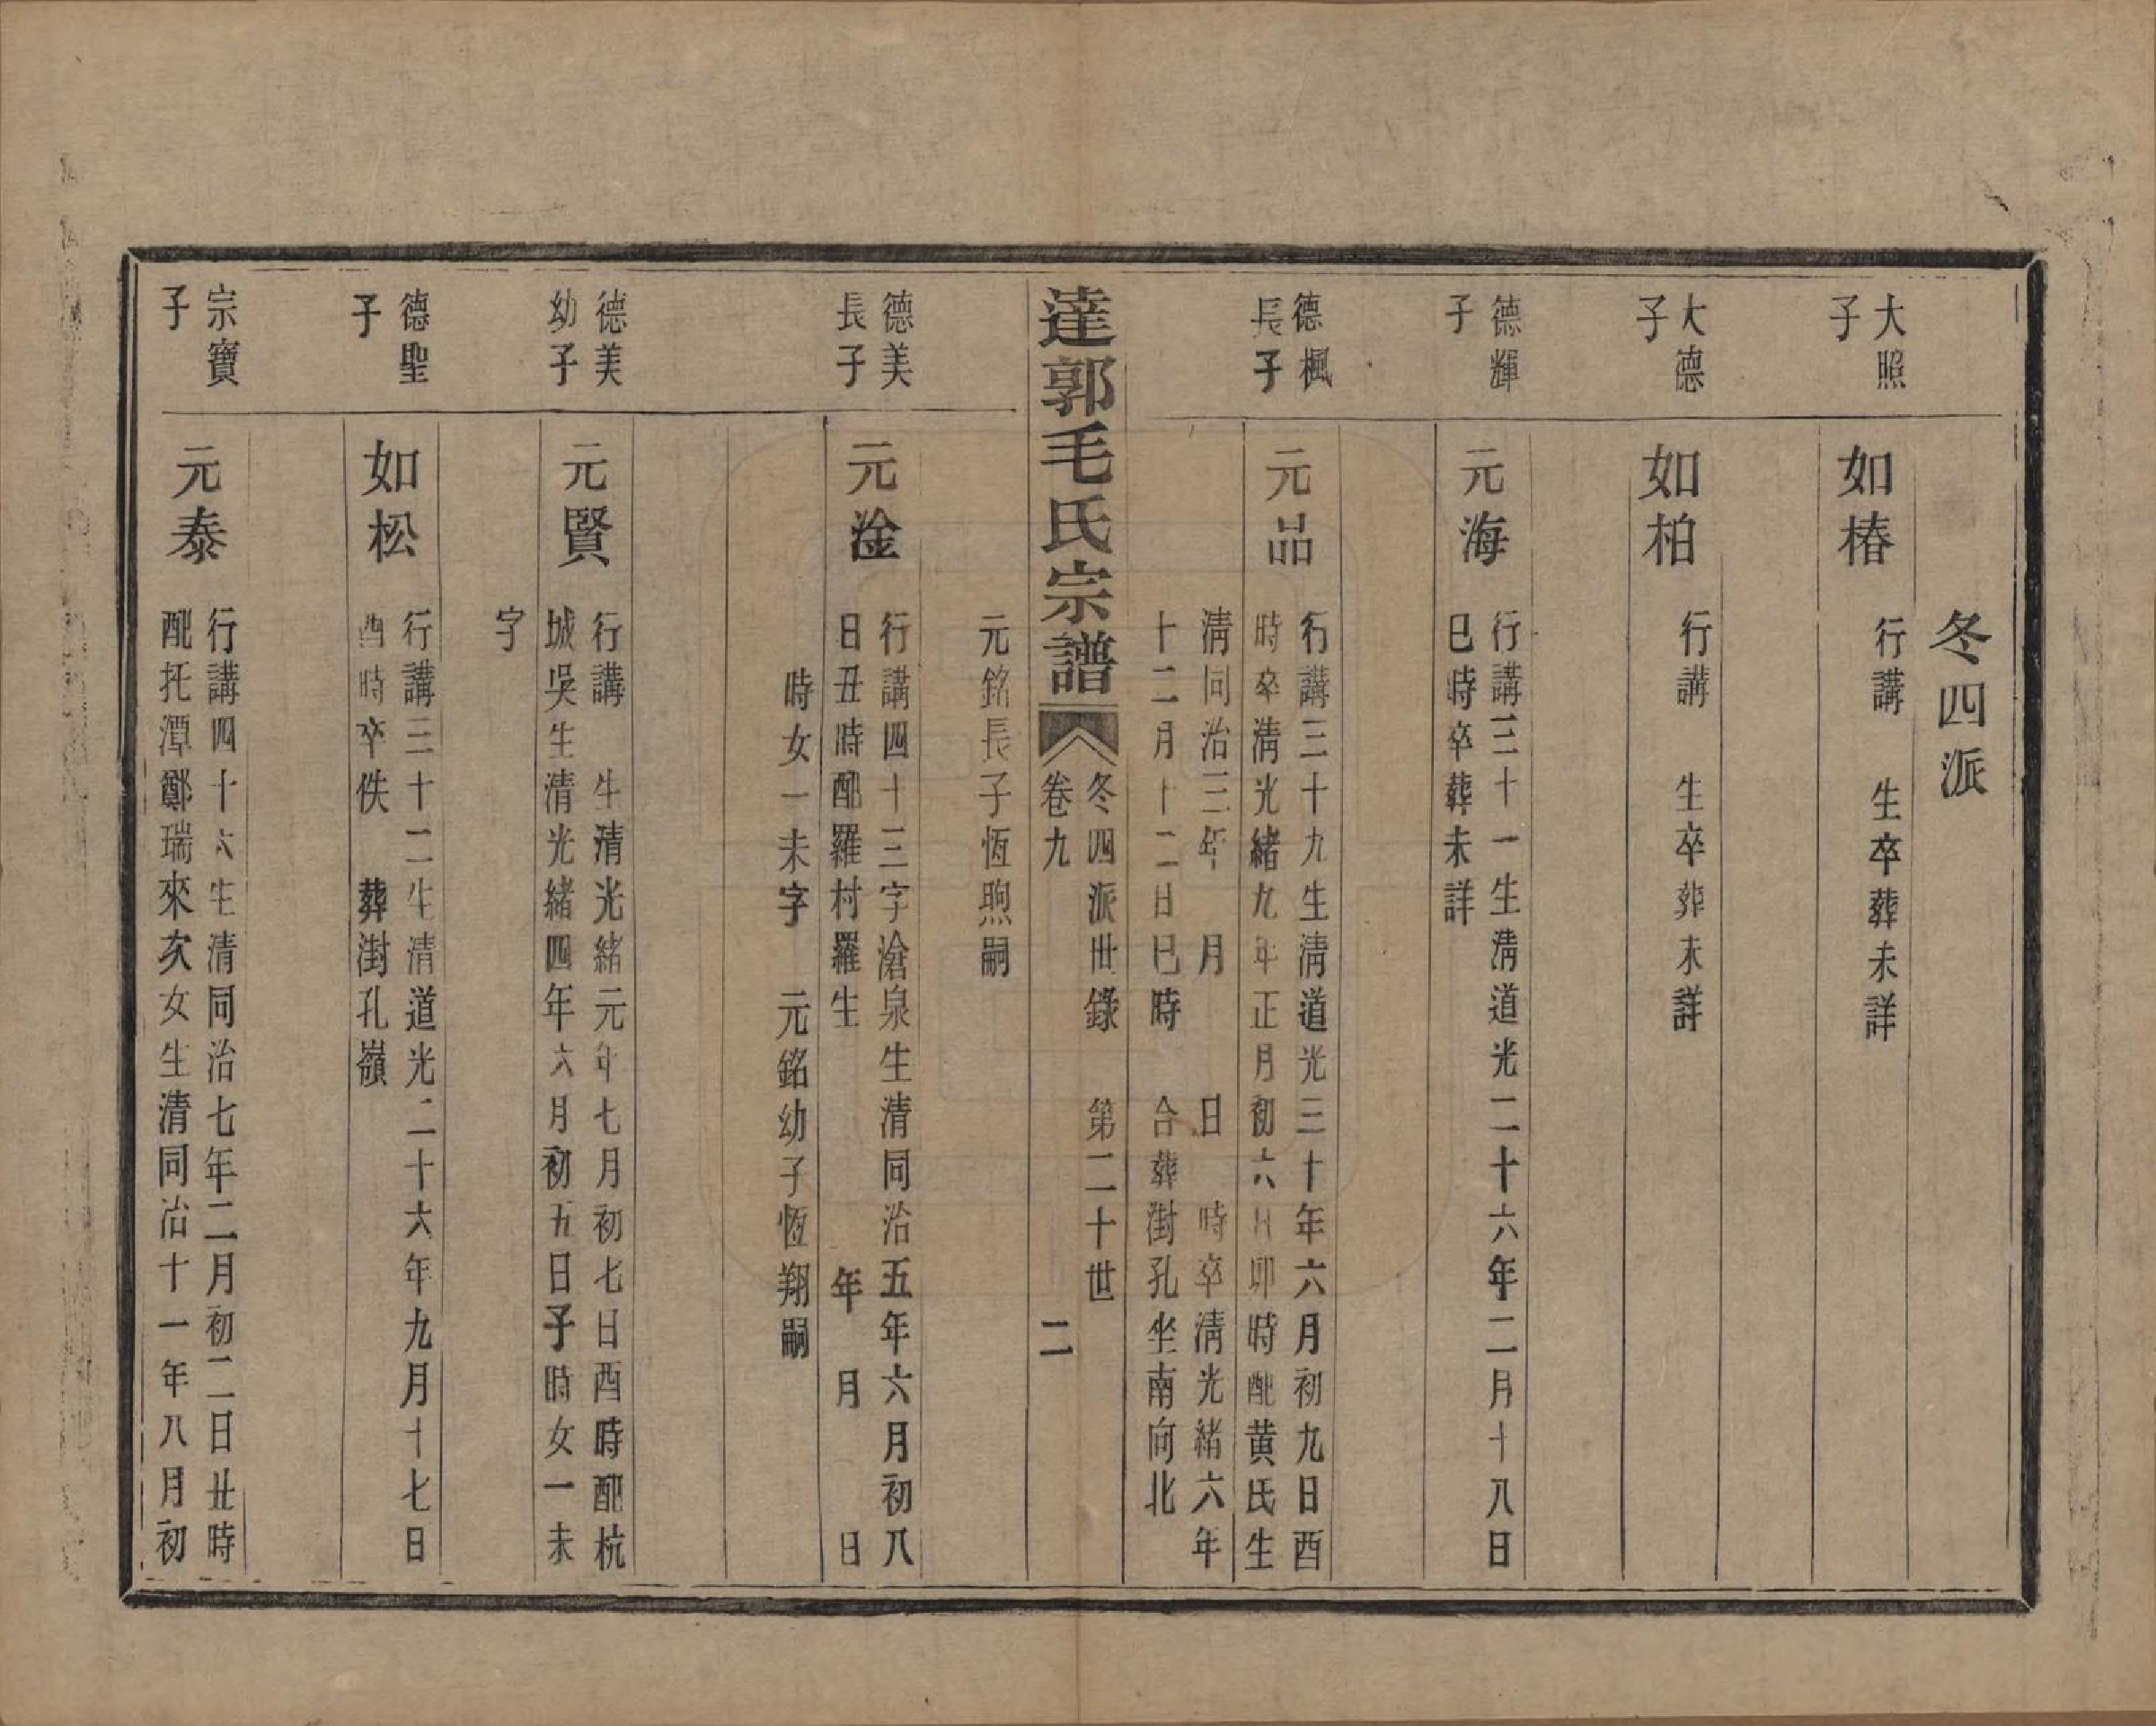 冬四派
大照
子
如椿
行講　生卒葬未詳
大德
子
如柏
行講　生卒葬未詳
德輝
子
元海
行講三十一生淸道光二十六年二月十八日
巳時卒葬未詳
德楓
長子
元品
行講三十九生淸道光三十年六月初九日酉
時卒淸光緒九年正月初六日卯時配黃氏生
淸同治三年　月　　日　時卒淸光緒六年
十二月十二日巳時　合葬澍孔坐南向北
達郭毛氏宗譜
冬四派世錄　第二十世
卷九
二
元銘長子恆煦嗣
德美
長子
元淦
行講四十三字滄泉生清同治五年六月初八
日丑時配羅村羅生　　　　年　月　　日
時女一未字　元銘幼子恆翔嗣
德美
幼子
元賢
行講　生清光緒元年七月初七日酉時配杭
城吳生清光緒四年六月初五日子時女一未
字
德聖
子
如松
行講三十二生清道光二十六年九月十七日
酉時卒佚　葬澍孔嶺
宗寶
子
元泰
行講四十六生清同治七年二月初二日丑時
配托潭鄭瑞來次女生清同治十一年八月初